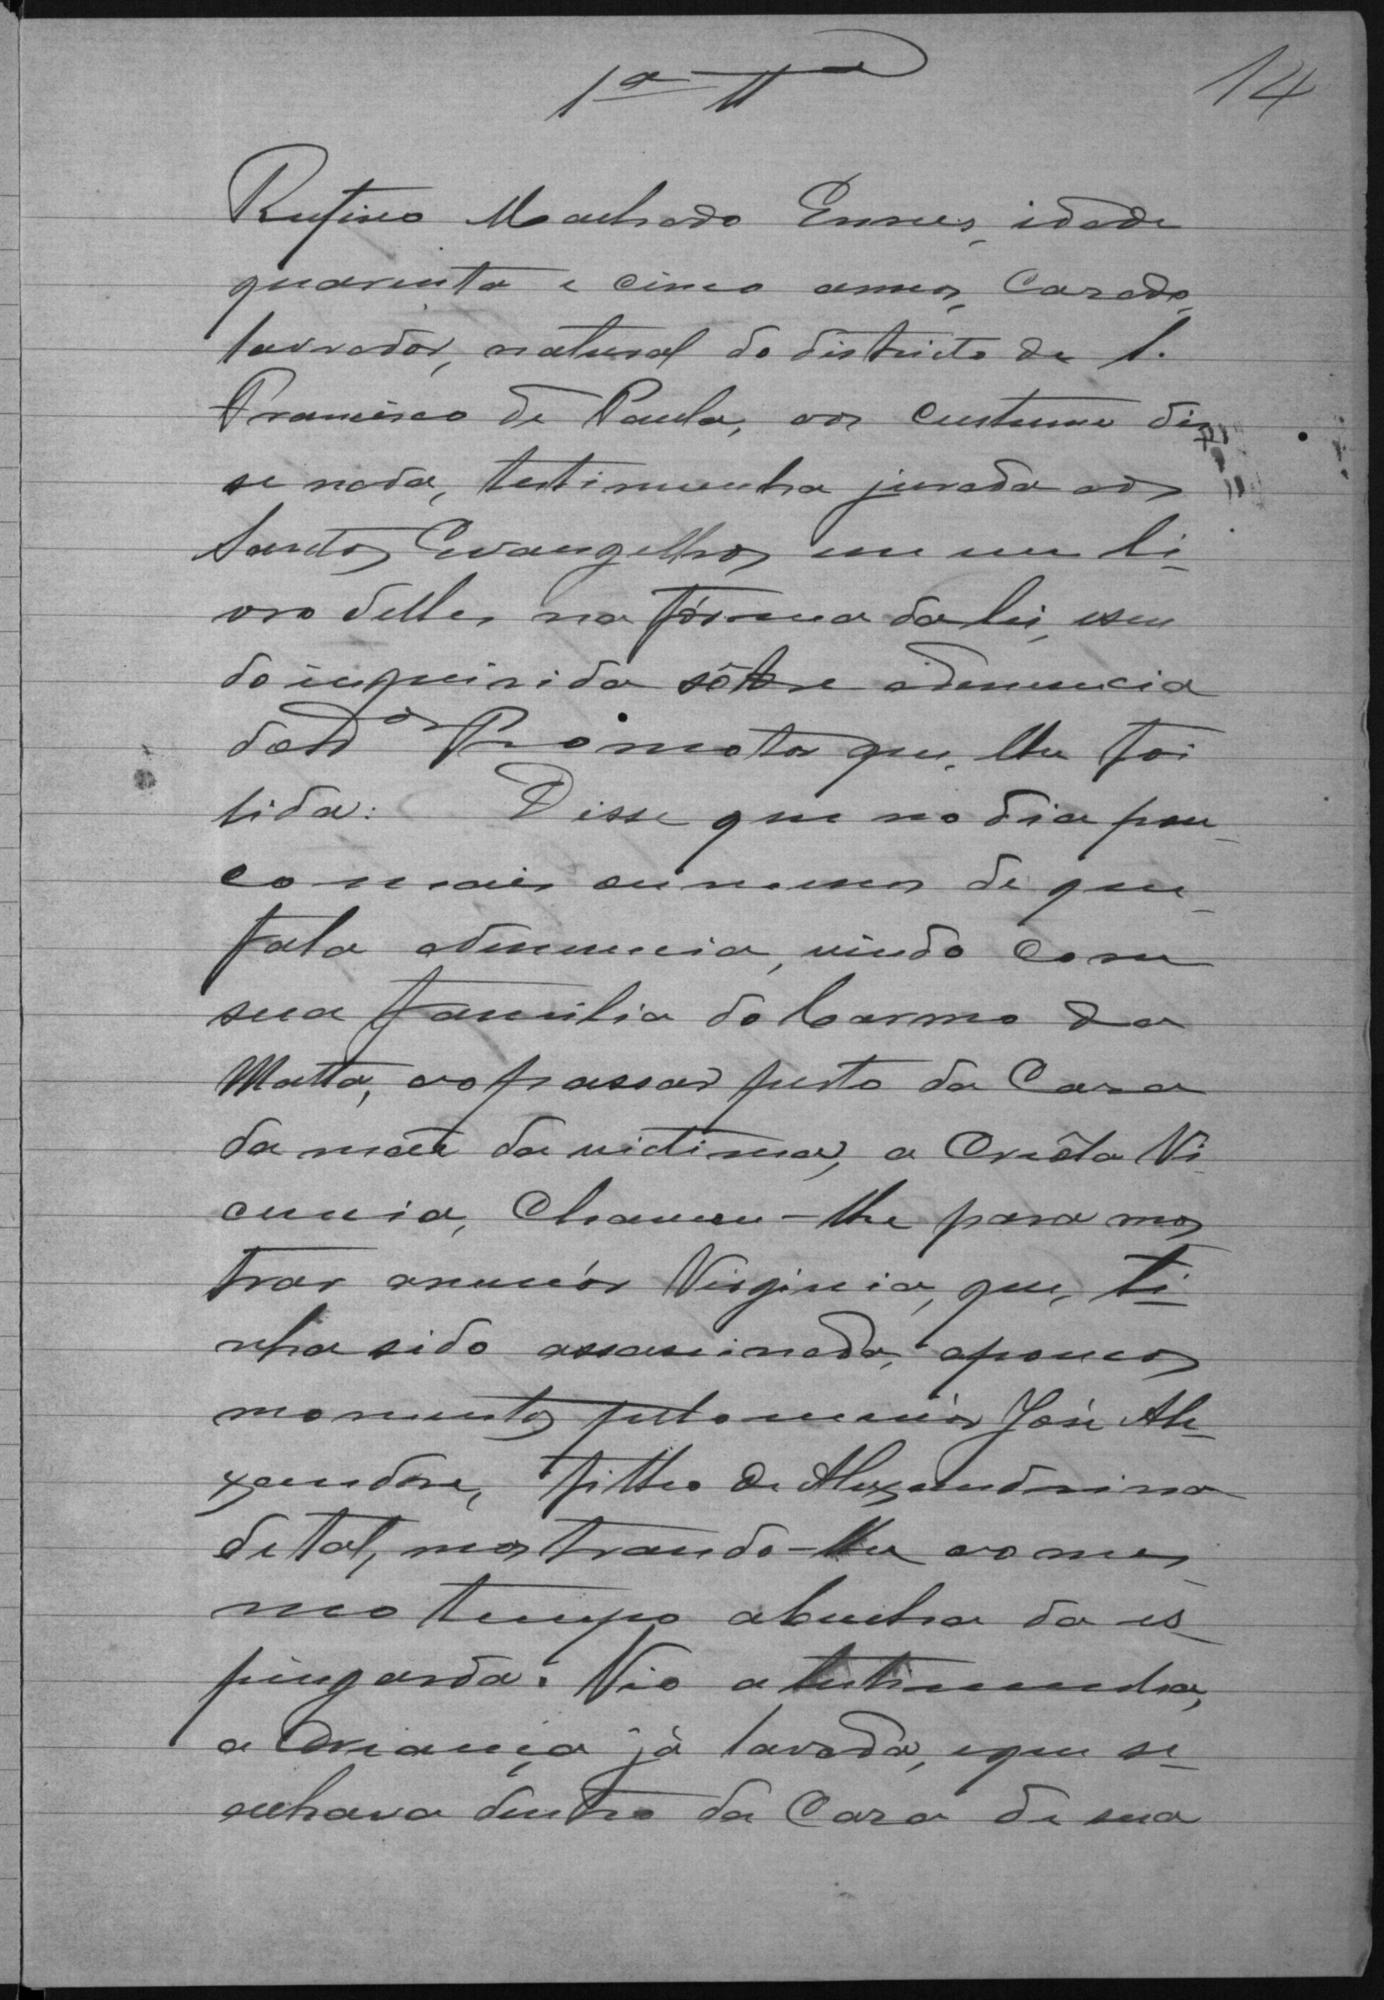 1ª T
14
Rufino Machado Ennes, idade
quarenta e cinco annos, casado,
lavrador, natural do districto de S.
Francisco de Paula, aos custume dis
se nada, testimunha jurada aos
Santos Evangelhos em um li-
vro delles na fórma da lei, e sen
do inquirida sôbre a denuncia
do Dor Promotor que, lhe foi
lida: Disse que no dia pou-
co mais ou menos de que-
fala a denuncia, vindo com
sua familia do Carmo da
Matta, ao passar perto da casa
da mãe da victima, a creôla Vi-
cencia, chamou-lhe para mos
trar a menór Virginia, que, ti-
nha sido assassinada, a poucos
momentos pelo menór José Ale-
xandre, filho de Alexandrina
de tal, mostrando-lhe ao mes-
mo tempo a bucha da es-
pingarda. Vio a testimunha,
a creança já lavada, e que se-
achava dentro da casa de sua